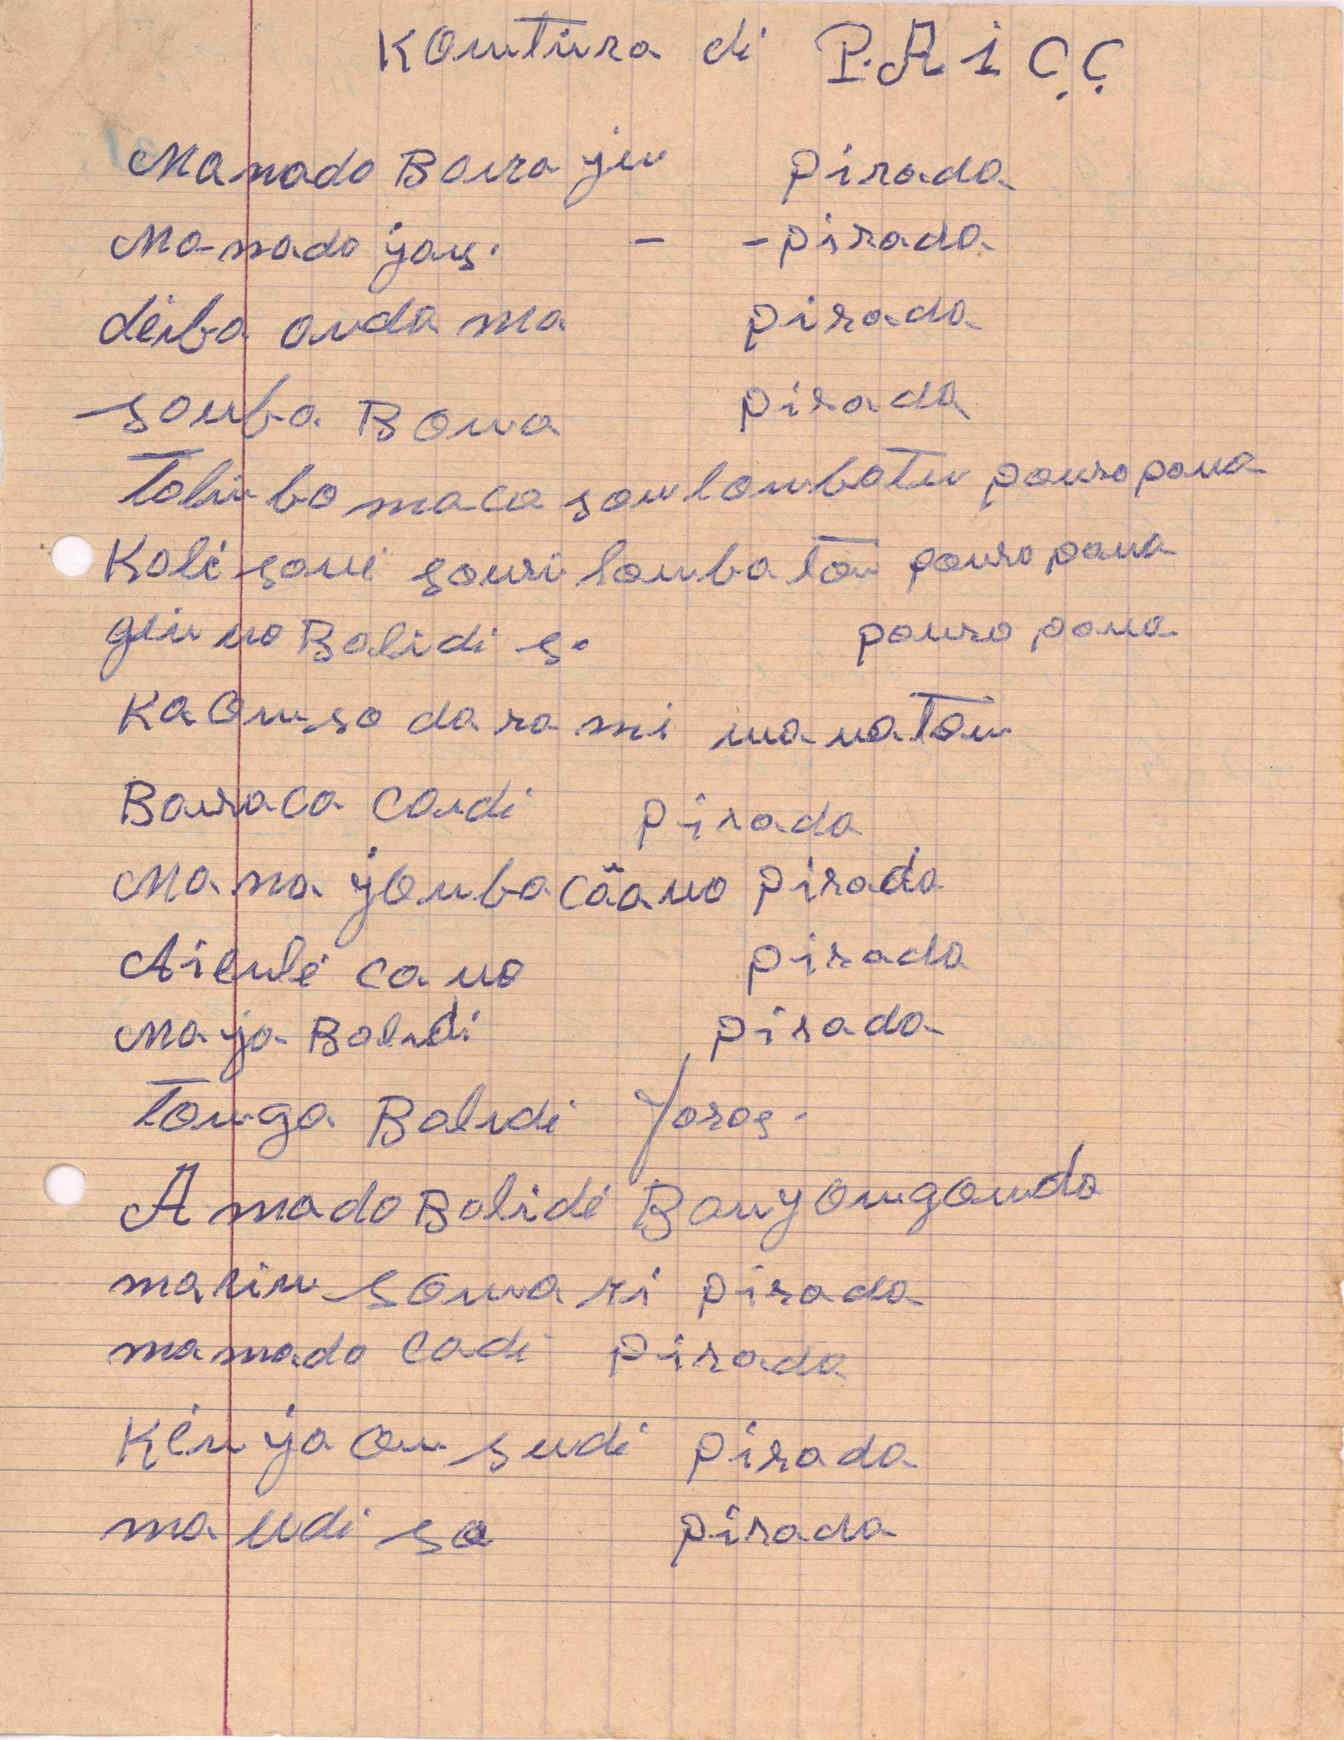 Kontura di P.Aiçç
Mamado Boira jiu pirada
Mamado jaus. - - pirada
deiba anda ma pirada
souba Bouva pirada
Tolinbo maca sonlonbatu pouropana
Koli soni souri lonbaton pouro pana
geiuno Balidi so pouro pana
Kaonso darami manaton
Bouraca Candi pirada
Mama jonba cãano pirada
Aieulé cano pirada
Maja Baludi pirada
Tonga Baludi yaros.
Amado Balidé Banyongando
mariu souvari pirada
mamado cadi pirada
Kénja on sudi pirada
maudi sa pirada